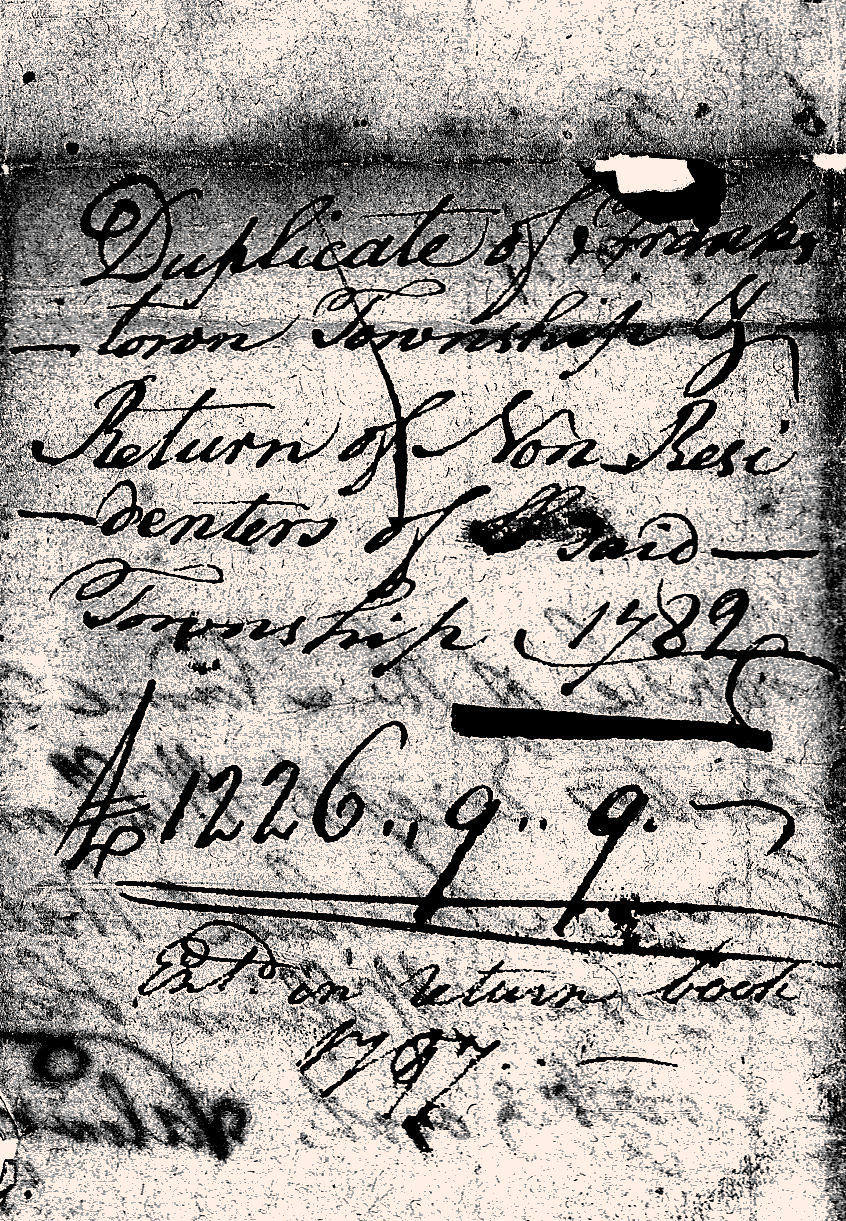 Duplicate of Franks
—town Township &
Return of Non Resi
—denters of said —
Township 1789
£ 1226 ,, 9 ,, 9.
Entd in return book
1787. —